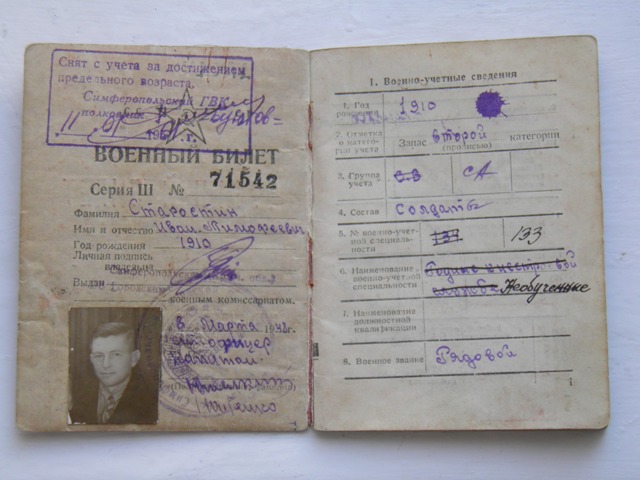 Снят с учета за достижением
предельного возраста.
Симферопольский ГВК
полковник
11 196 г.
ВОЕННЫЙ БИЛЕТ
Серия Ш № 71542
Фамилия Старостин
Имя и отчество Иван Тимофеевич
Год рождения 1910
Личная подпись
владельца
Выдан Симферопольским
Городским
военным комиссариатом.
8 Марта 1948г.
Капитан
I. Военно-учетные сведения
1. Год
рождения 1910
2. Отметка
о катего-
рии учета Запас второй категории
(прописью)
3. Группа
учета С.В СА
4. Состав Солдаты
5. № военно-учет-
ной специаль-
ности 134 133
6. Наименование
военно-учетной
специальности Необученные
7. Наименование
должностной
квалификации
8. Военное звание Рядовой